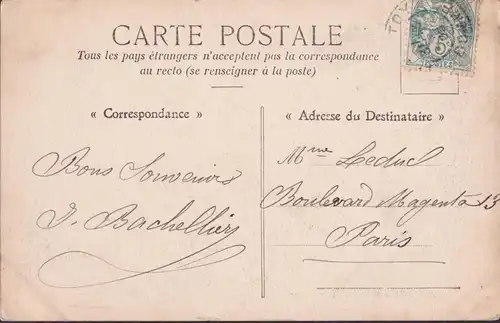 CARTE POSTALE
Tous les pays étrangers n'acceptent pas la correspondance
au recto (se renseigner à la poste)
« Correspondance »
« Adresse du Destinataire »
Bons Souvenirs
J. Bachelliers
Mme Leduc
Boulevard Magenta 13
Paris